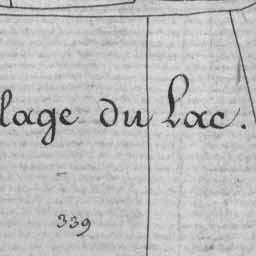 lage du Lac.
339